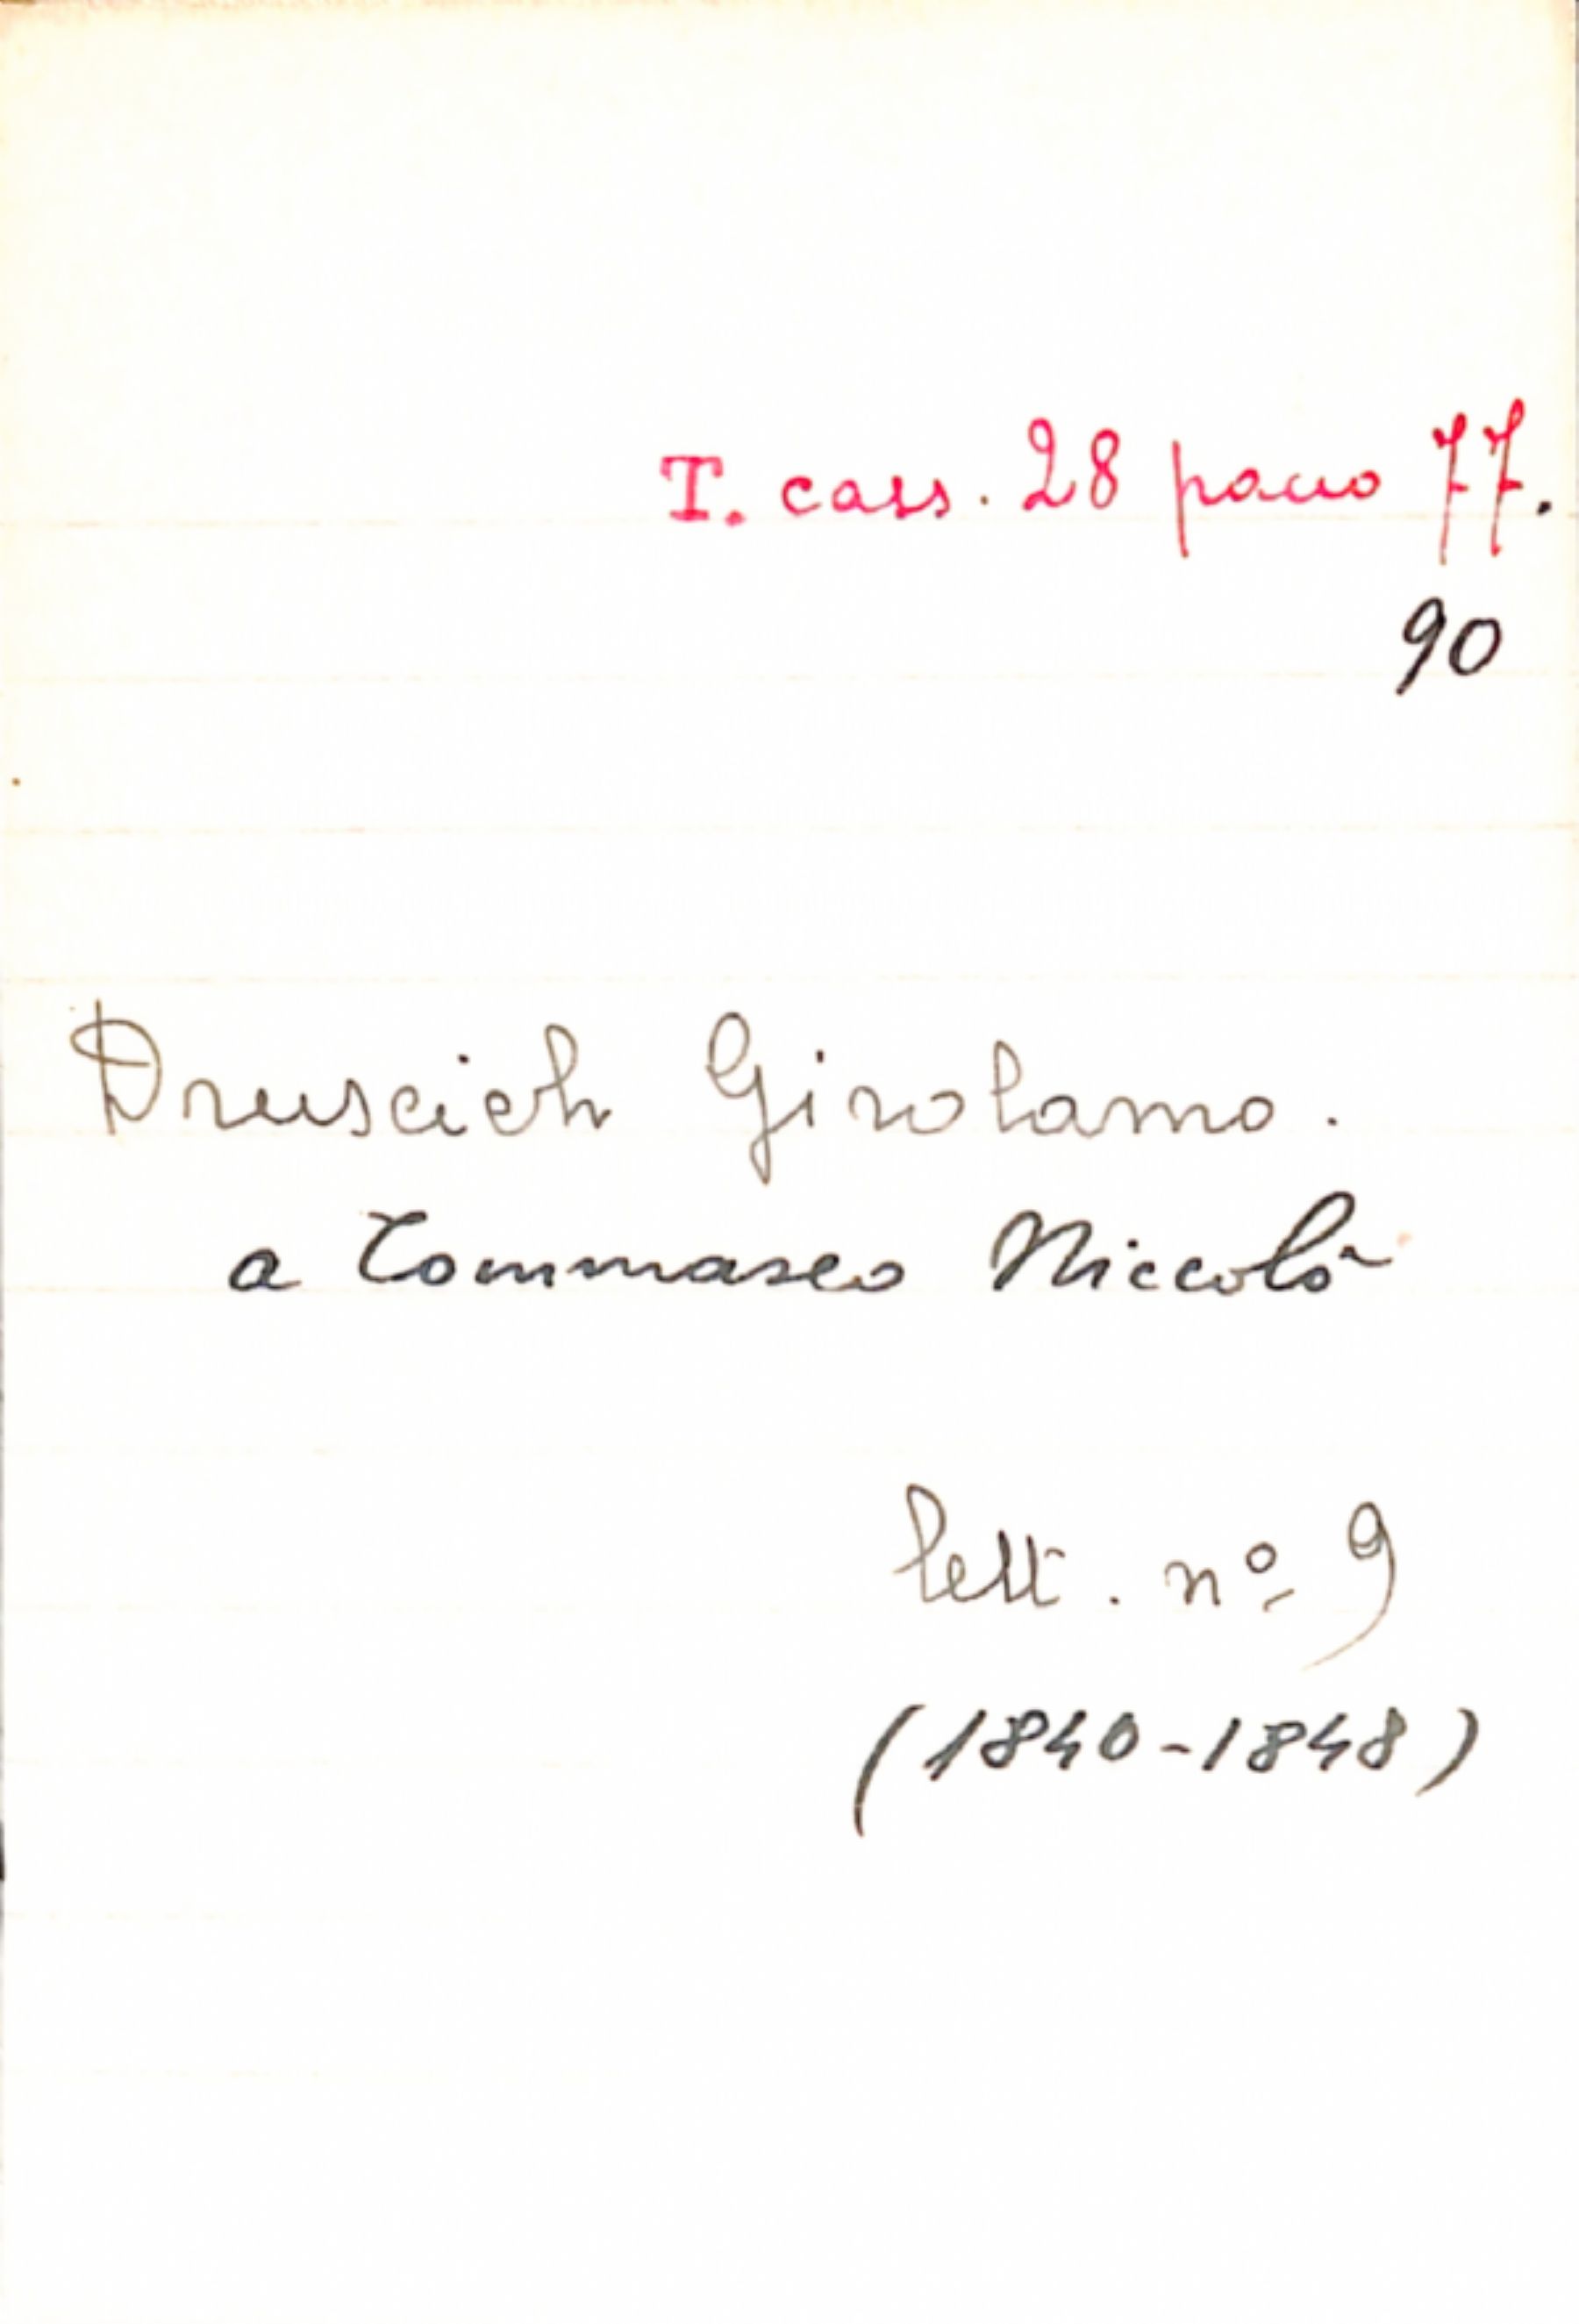 T. cass. 28 pacco 77.
90
Druscich Girolamo.
a Tommaseo Niccolò
lett. nº 9
(1840-1848)